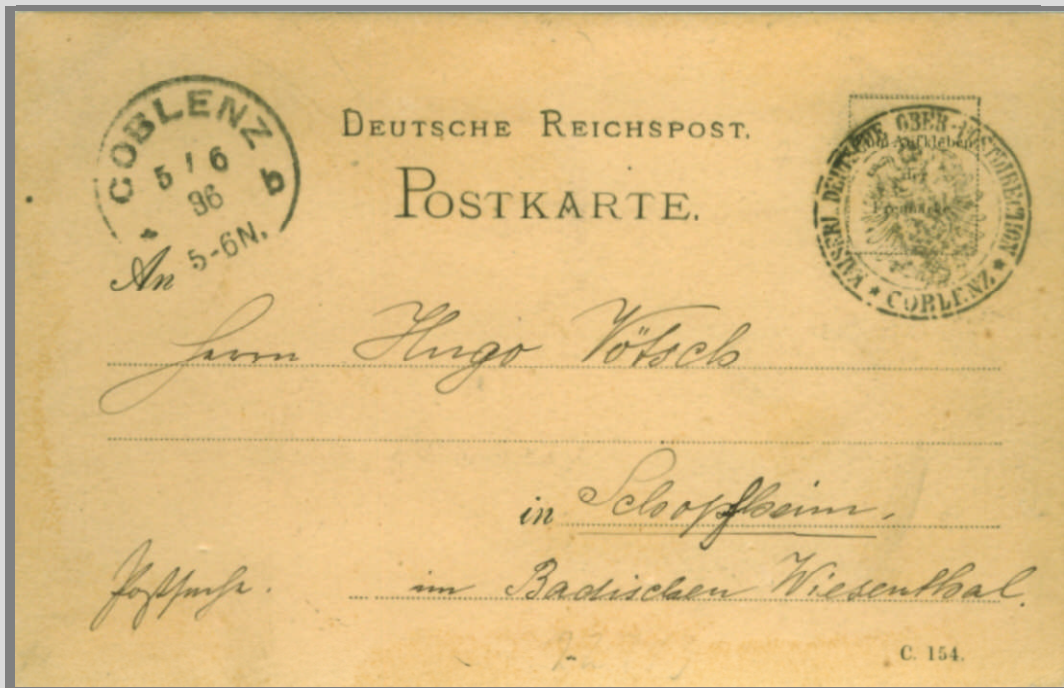 COBLENZ
5 / 6
86
5-6N.
b
DEUTSCHE REICHSPOST.
POSTKARTE.
KAISERL. DEUTSCHE OBER-POSTDIRECTION
* COBLENZ *
zum Aufkleben
der
An
Herrn Hugo Vötsch
in Schopfheim.
Postsache.
im Badischen Wiesenthal.
C. 154.